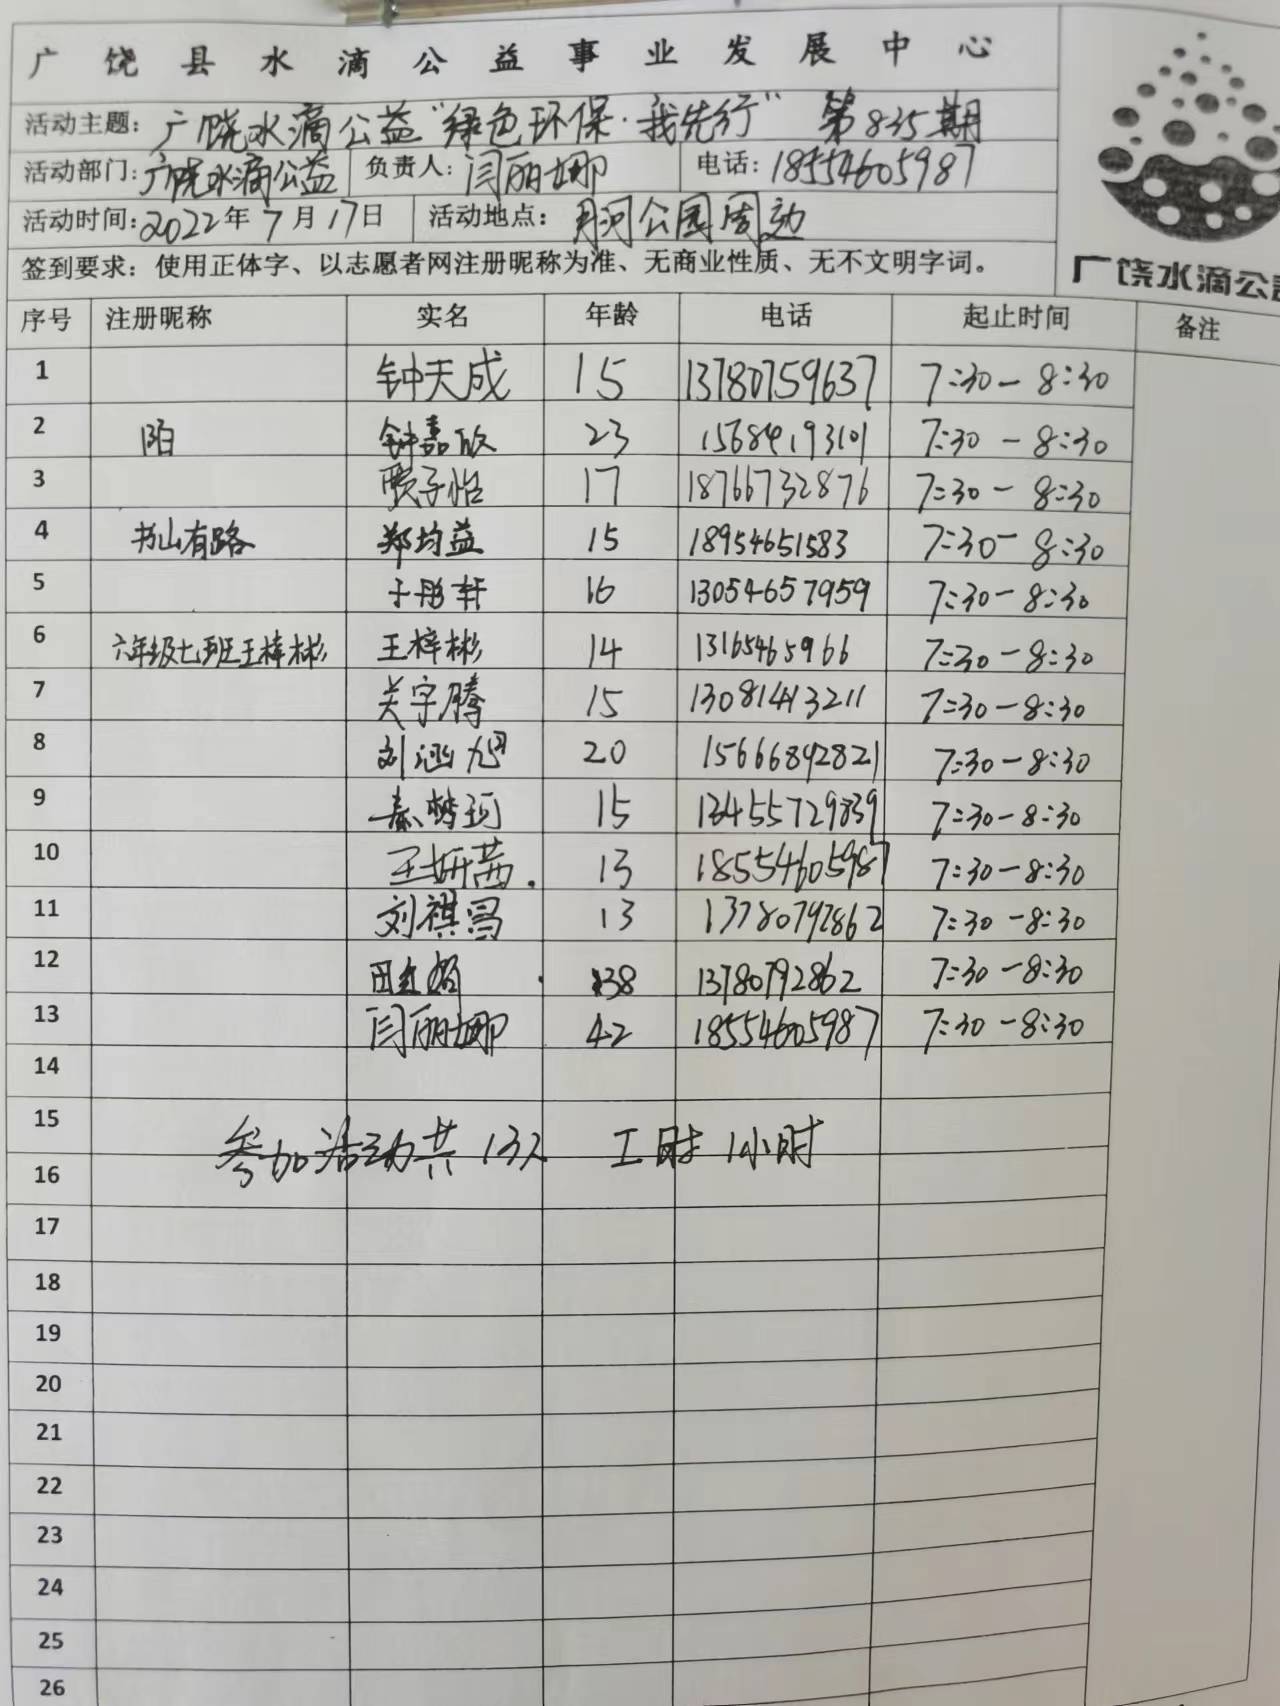 广饶县水滴公益事业发展中心
活动主题: 广饶水滴公益“绿色环保·我先行” 第835期
活动部门: 广饶水滴公益 负责人: 闫丽娜 电话: 18554605987
活动时间: 2022年7月17日 活动地点: 月河公园周边
签到要求: 使用正体字、以志愿者网注册昵称为准、无商业性质、无不文明字词。
广饶水滴公益
序号 注册昵称 实名 年龄 电话 起止时间 备注
1 钟天成 15 13780759637 7:30-8:30
2 陌 钟嘉欣 23 15684193101 7:30-8:30
3 贾子怡 17 18766732876 7:30-8:30
4 书山有路 郑均益 15 18954651583 7:30-8:30
5 于彤轩 16 13054657959 7:30-8:30
6 六年级七班王梓彬 王梓彬 14 13165465966 7:30-8:30
7 关宇腾 15 13081413211 7:30-8:30
8 刘涵旭 20 15666842821 7:30-8:30
9 秦梦珂 15 13455729839 7:30-8:30
10 王妍茜. 13 18554605987 7:30-8:30
11 刘祺昌 13 13780792862 7:30-8:30
12 38 13780792862 7:30-8:30
13 闫丽娜 42 18554605987 7:30-8:30
14
15
参加活动共13人 工时1小时
16
17
18
19
20
21
22
23
24
25
26